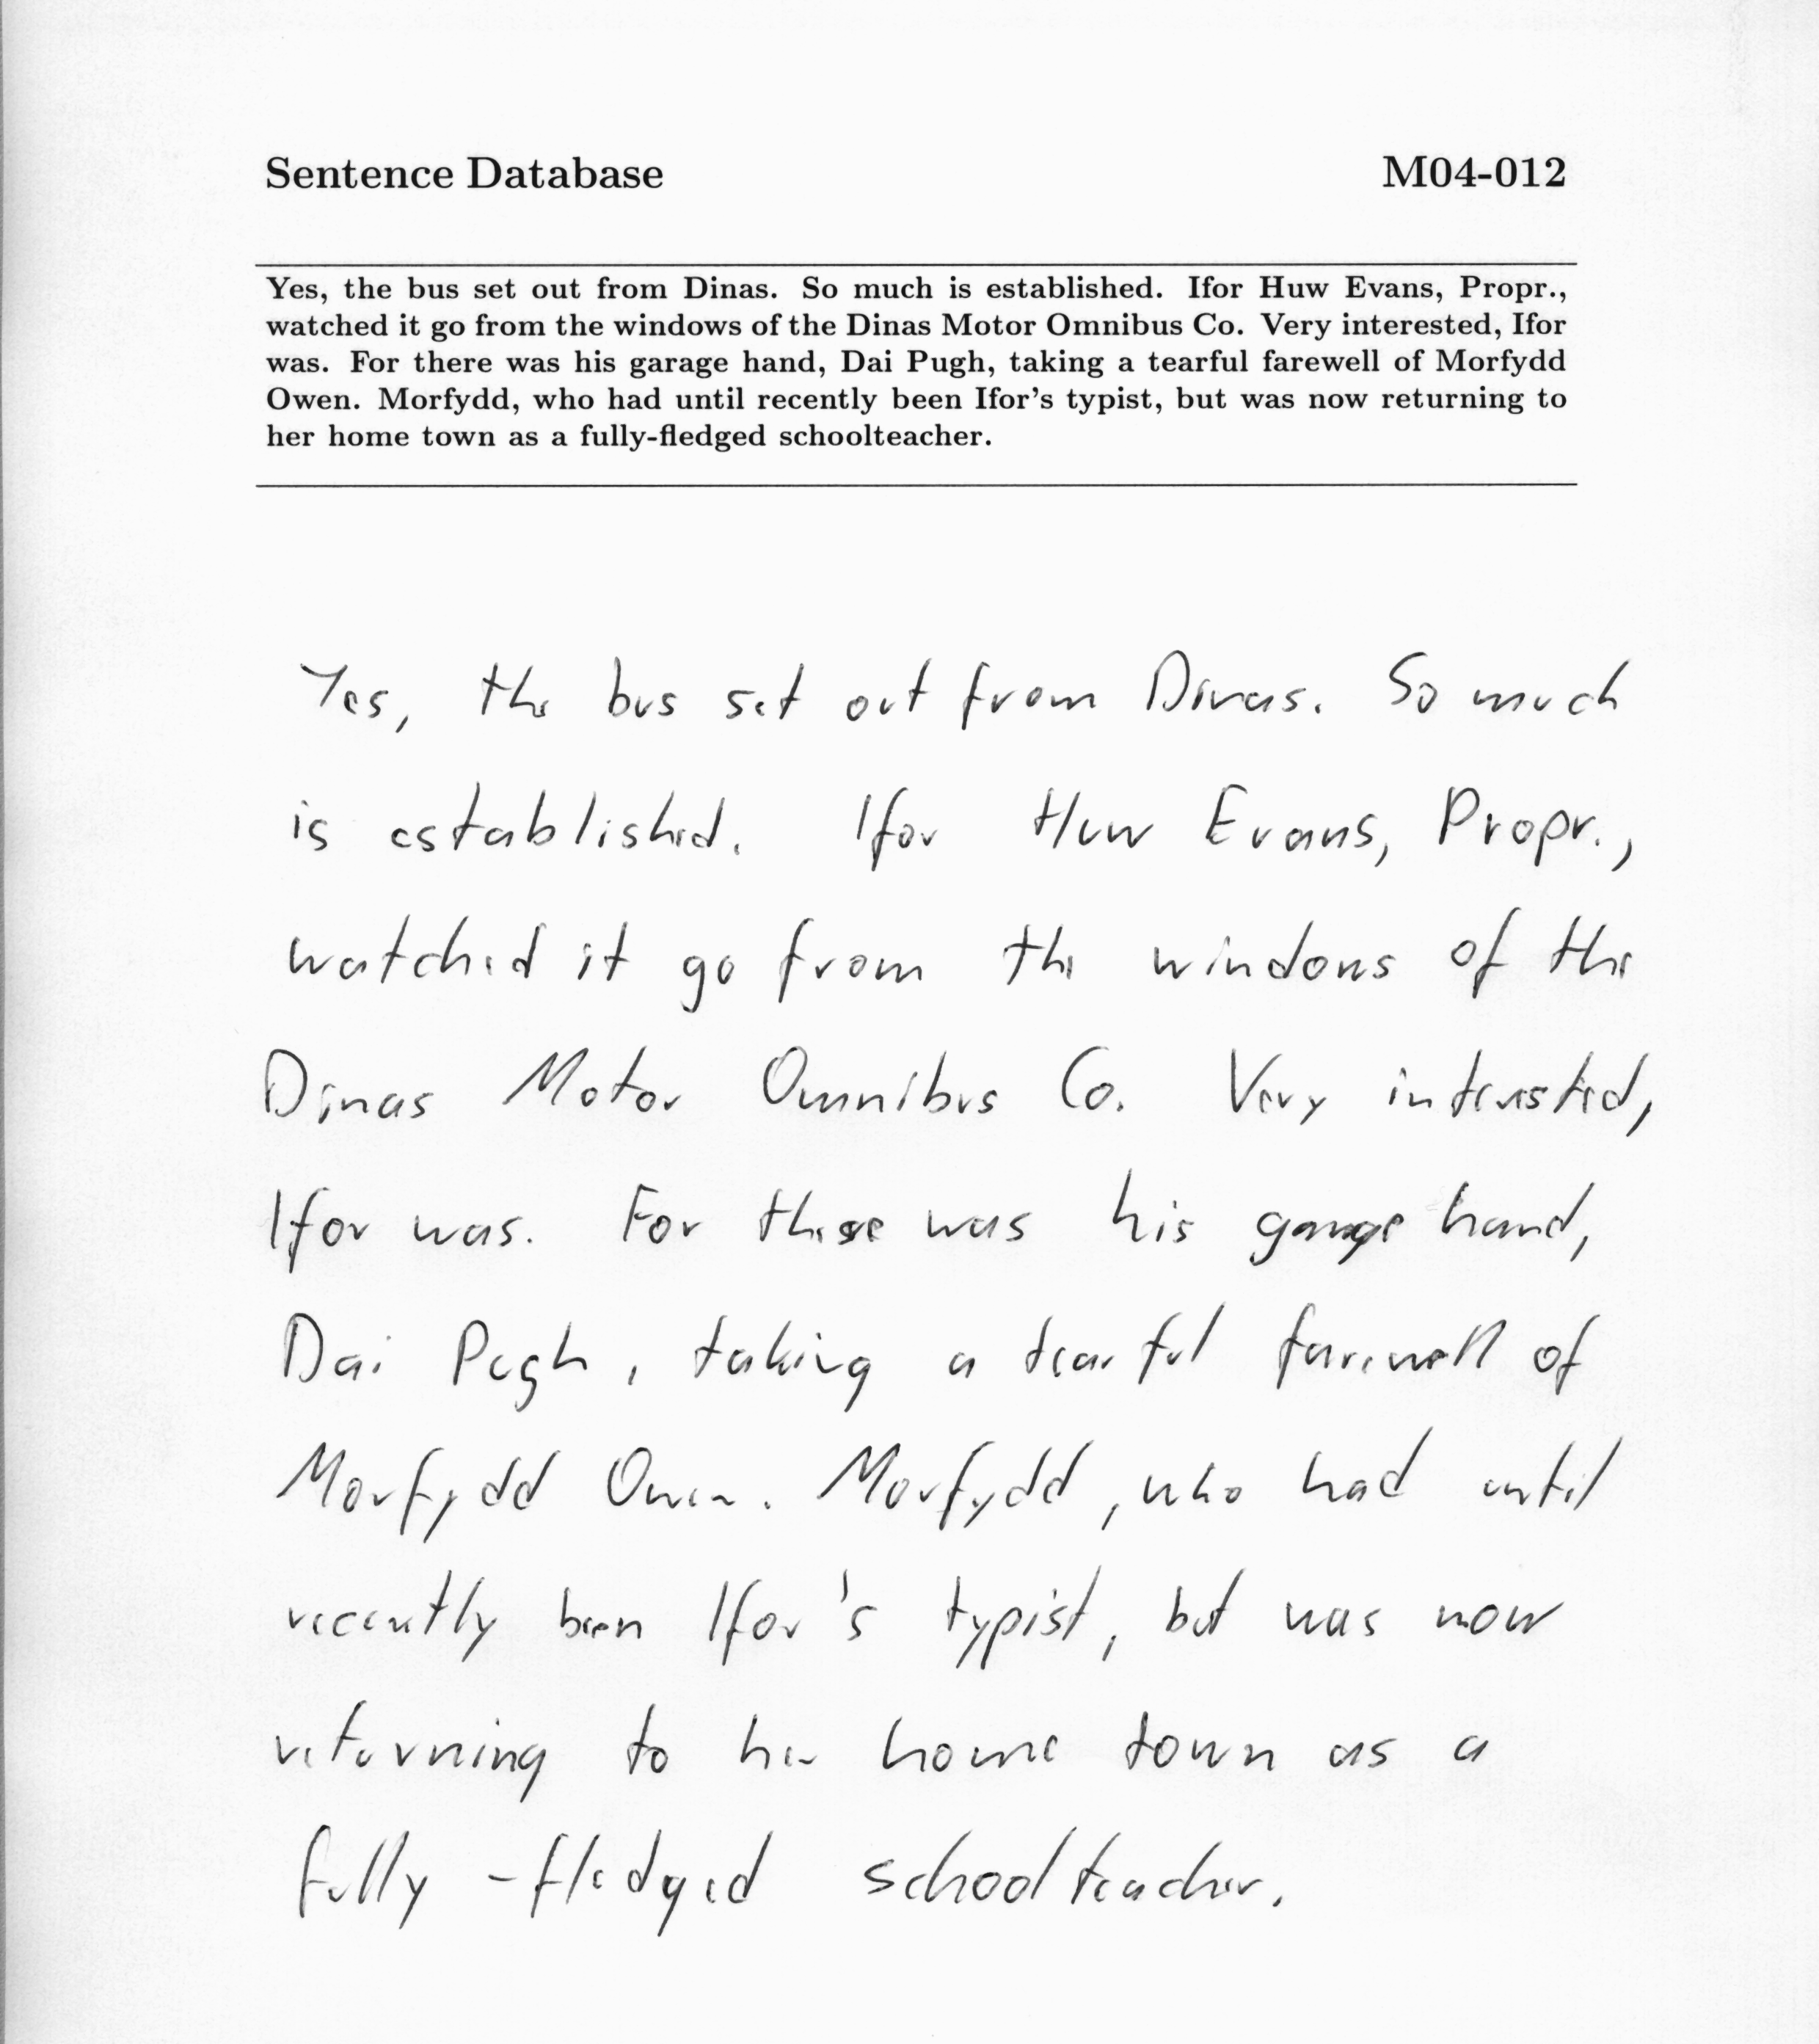 Sentence Database M04-012
Yes, the bus set out from Dinas. So much is established. Ifor Huw Evans, Propr.,
watched it go from the windows of the Dinas Motor Omnibus Co. Very interested, Ifor
was. For there was his garage hand, Dai Pugh, taking a tearful farewell of Morfydd
Owen. Morfydd, who had until recently been Ifor's typist, but was now returning to
her home town as a fully-fledged schoolteacher.
Yes, the bus set out from Dinas. So much
is established. Ifor Huw Evans, Propr.,
watched it go from the windows of the
Dinas Motor Omnibus Co. Very interested,
Ifor was. For there was his garage hand,
Dai Pugh, taking a tearful farewell of
Morfydd Owen. Morfydd, who had until
recently been Ifor's typist, but was now
returning to her home town as a
fully-fledged schoolteacher.